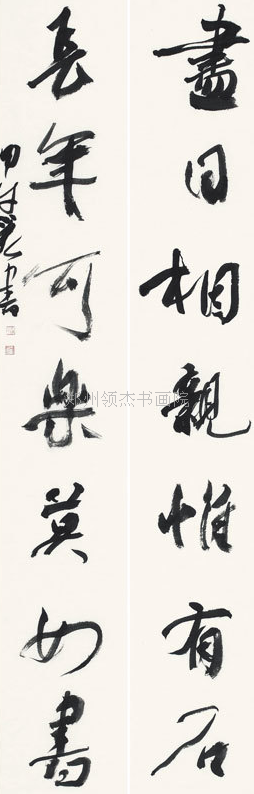 盡日相親惟有石
長年可樂莫如書
郑州领杰书画院